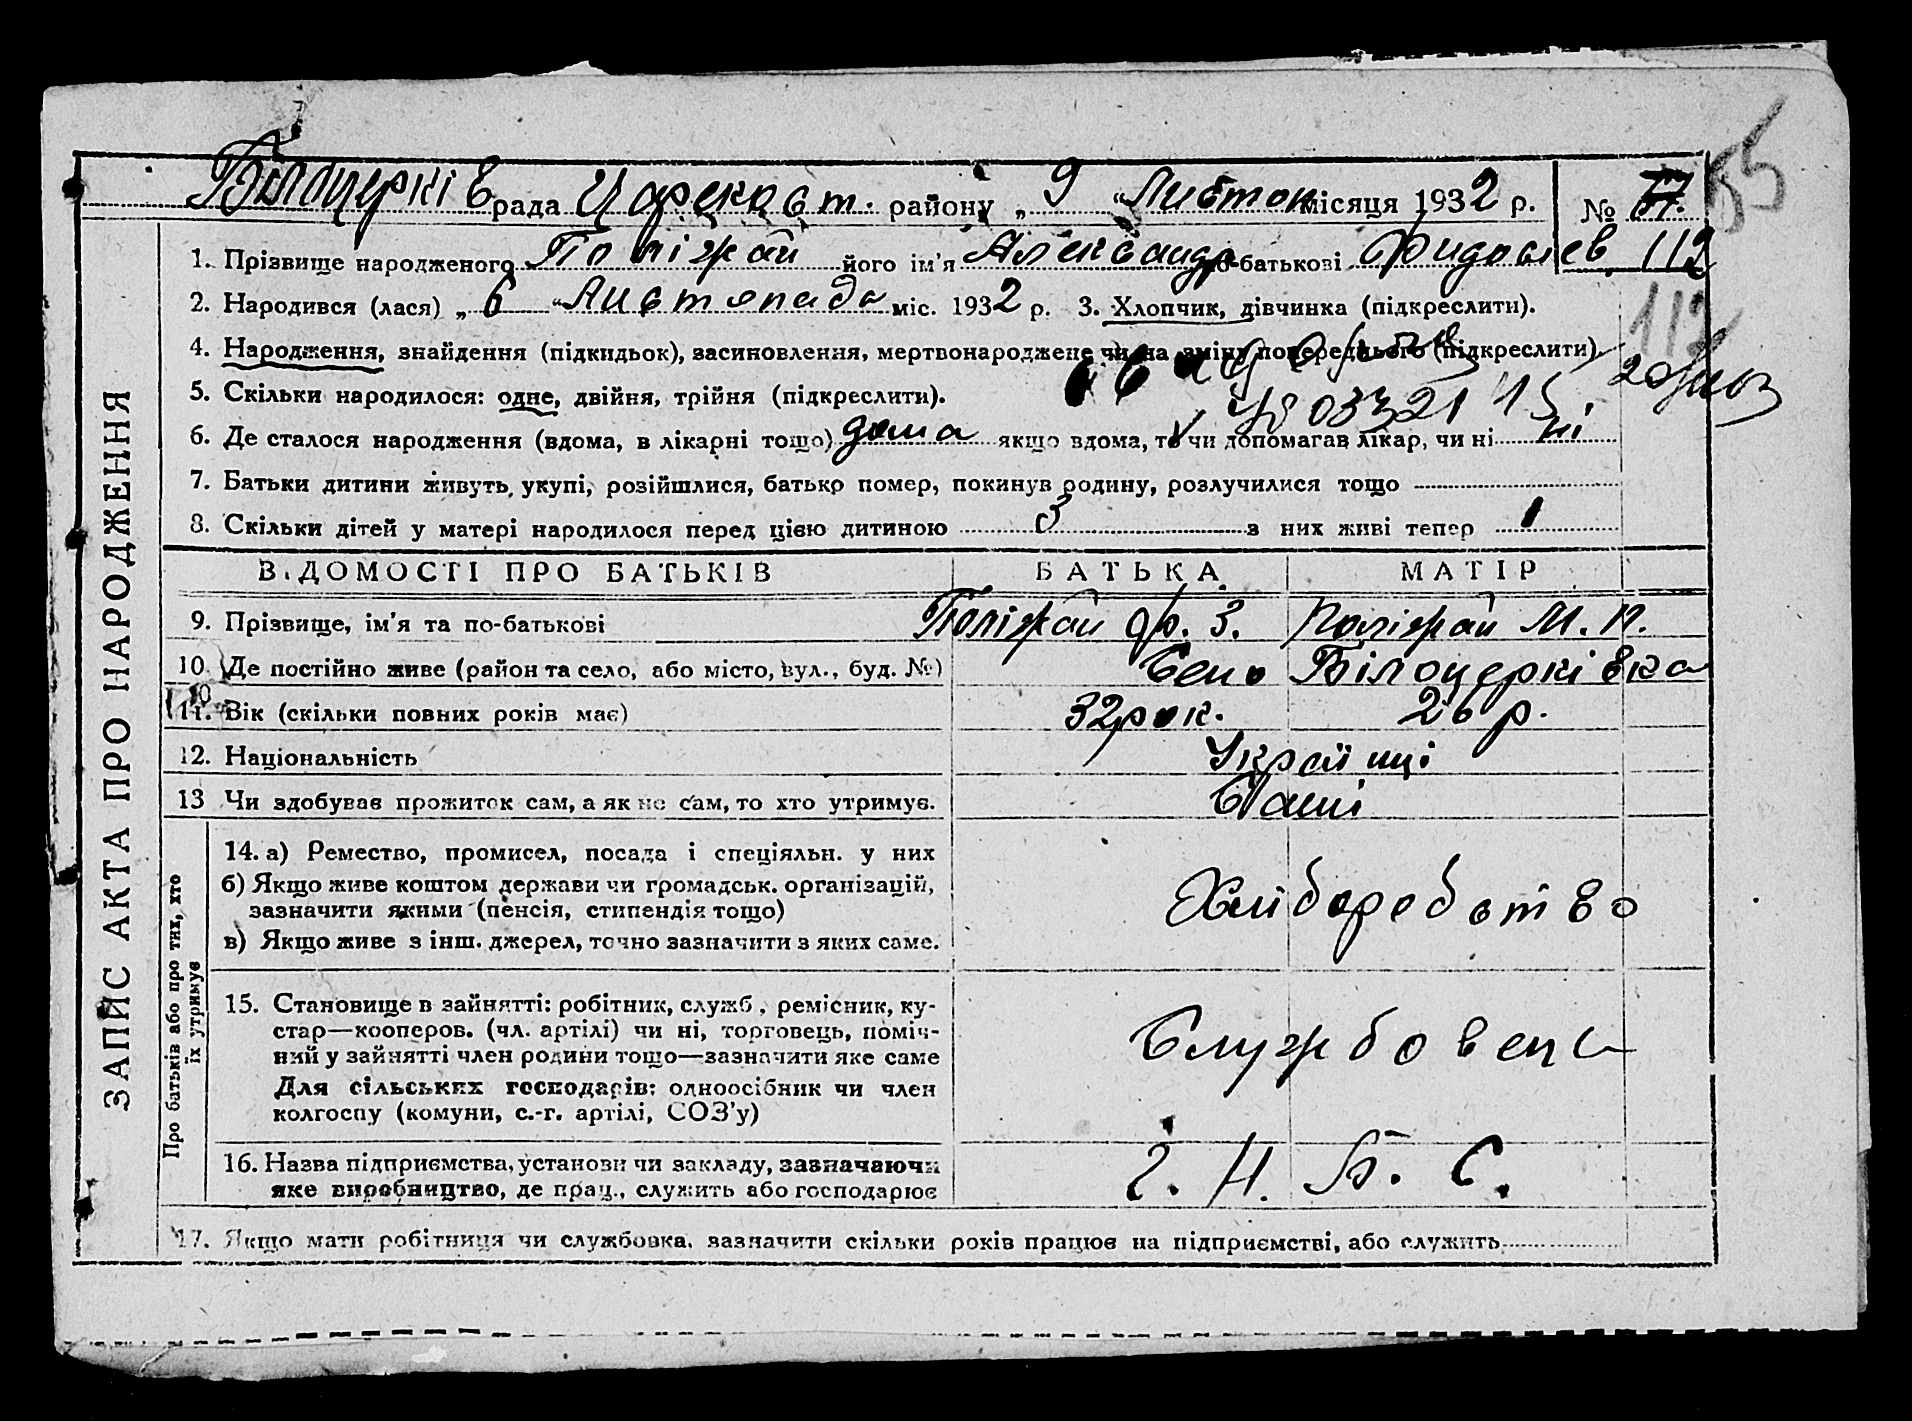 Білоцерків рада Царекост. району „ 9 “ Листоп місяця 1932 р. № 17. 55
1. Прізвище народженого Поліжай його ім'я Александр по-батькові 112
2. Народився (лася) „ 6 “ Листопада міс. 1932 р. 3. Хлопчик, дівчинка (підкреслити). 112
4. Народження, знайдення (підкидьок), засиновлення, мертвонароджене чи на зміну попереднього (підкреслити)
5. Скільки народилося: одне, двійня, трійня (підкреслити).
6. Де сталося народження (вдома, в лікарні тощо) дома якщо вдома, то чи допомагав лікар, чи ні ні
7. Батьки дитини живуть укупі, розійшлися, батько помер, покинув родину, розлучилися тощо
8. Скільки дітей у матері народилося перед цією дитиною 3 з них живі тепер 1
ЗАПИС АКТА ПРО НАРОДЖЕННЯ
ВІДОМОСТІ ПРО БАТЬКІВ БАТЬКА МАТІР
9. Прізвище, ім'я та по-батькові Поліжай Ф. З. Поліжай М. П.
10. Де постійно живе (район та село, або місто, вул., буд. №) Село Білоцерківка
11. Вік (скільки повних років має) 32 рок. 26 р.
12. Національність Українці
13 Чи здобував прожиток сам, а як не сам, то хто утримує. Самі
Про батьків або про тих, хто їх утримує
14. а) Ремество, промисел, посада і спеціяльн. у них
б) Якщо живе коштом держави чи громадськ. організацій,
зазначити якими (пенсія, стипендія тощо)
Хліборобство
в) Якщо живе з інш. джерел, точно зазначити з яких саме.
15. Становище в зайнятті: робітник, служб., ремісник, ку-
стар—кооперов. (чл. артілі) чи ні, торговець, поміч-
ний у зайнятті член родини тощо—зазначити яке саме
Службовець
Для сільських господарів: одноосібник чи член
колгоспу (комуни, с.-г. артілі, СОЗ'у)
16. Назва підприємства, установи чи закладу, зазначаючи
яке виробництво, де прац., служить або господарює
17. Якщо мати робітниця чи службовка, зазначити скільки років працює на підприємстві, або служить